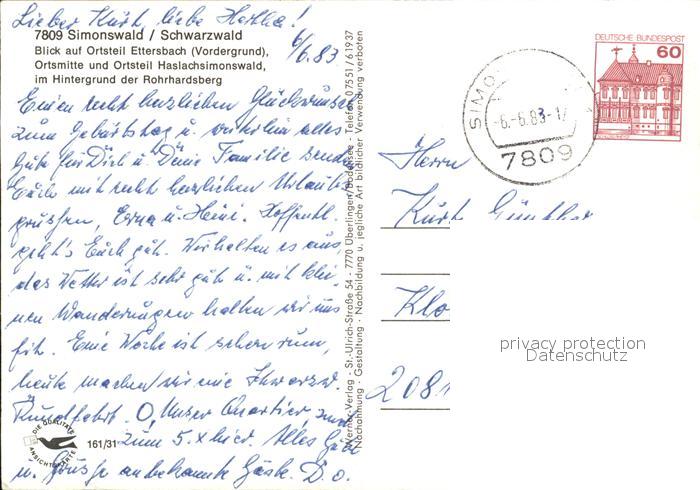 Lieber Kurt, liebe Hertha!
7809 Simonswald / Schwarzwald
Blick auf Ortsteil Ettersbach (Vordergrund),
Ortsmitte und Ortsteil Haslachsimonswald,
im Hintergrund der Rohrhardsberg
6/6.83
Einen recht herzlichen Glückwunsch
zum Geburtstag u. weiterhin alles
Gute für Dich u. Deine Familie senden
Euch mit recht herzlichen Urlaubs
grüssen, Erna u. Heini. Hoffentl.
geht's Euch gut. Wir halten es aus,
das Wetter ist sehr gut u. mit klei-
nen Wanderungen halten wir uns
fit. Eine Woche ist schon rum,
heute machen wir eine Schwarzw.
Rundfahrt. Unser Quartier
zum 5. x hier. Alles Gute
u. Grüsse an bekannte Gäste. D. o.
DIE QUALITÄTS
ANSICHTSKARTE
161/31
Werner-Verlag · St.-Ulrich-Straße 54 · 7770 Überlingen/Bodensee · Telefon 07551/61937
Nachahmung · Gestaltung · Nachbildung u. jegliche Art bildlicher Verwendung verboten
DEUTSCHE BUNDESPOST
60
SIMO
-6.-6.83-17
7809
Herrn
Kurt Günther
Klo
2081
privacy protection
Datenschutz